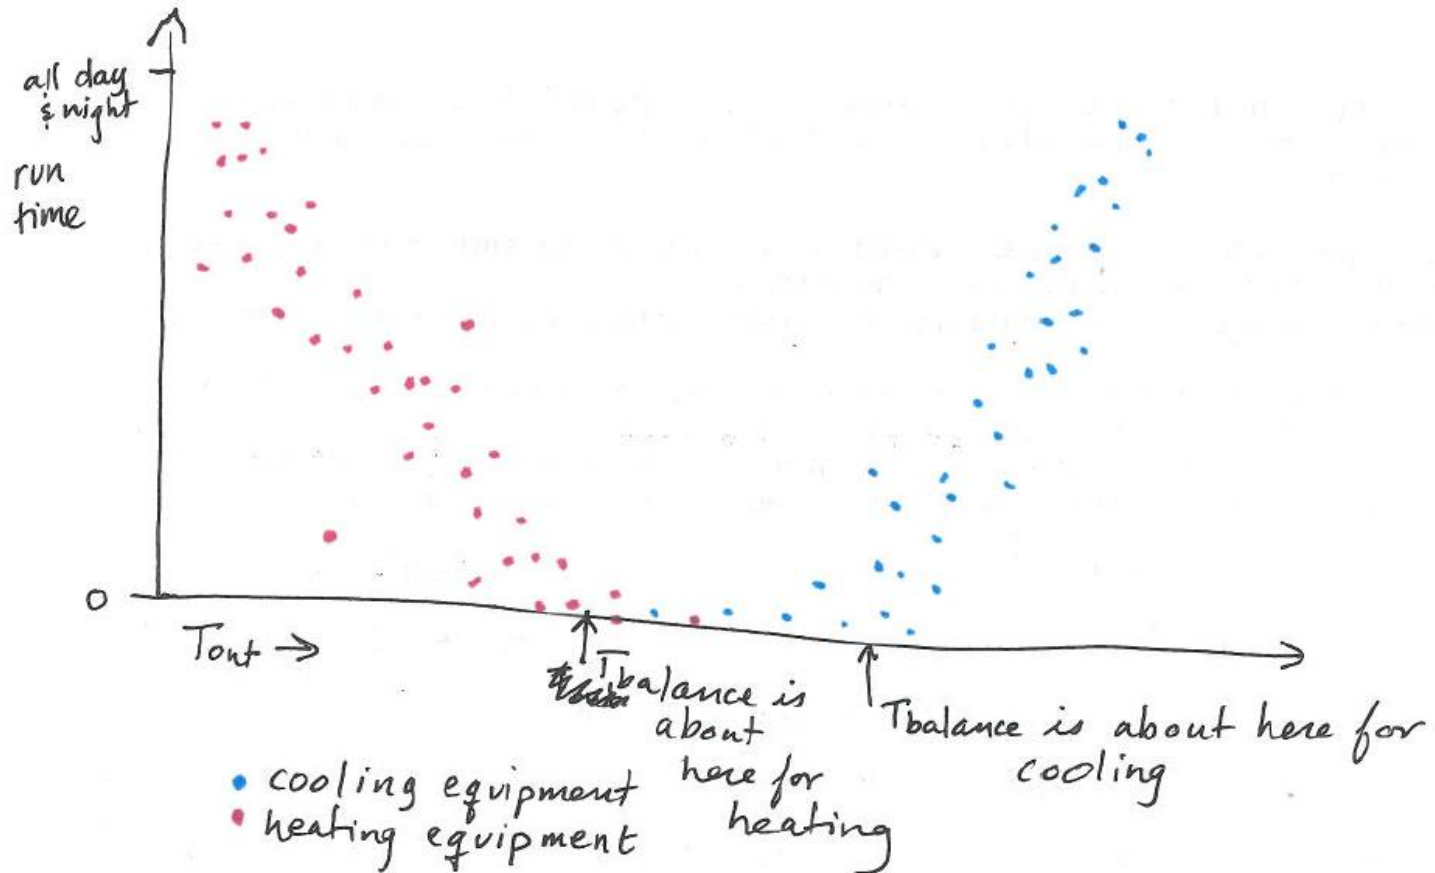 all day
& night
run
time
0
Tout →
Tbalance is
about
here for
heating
Tbalance is about here for
cooling
cooling equipment
heating equipment